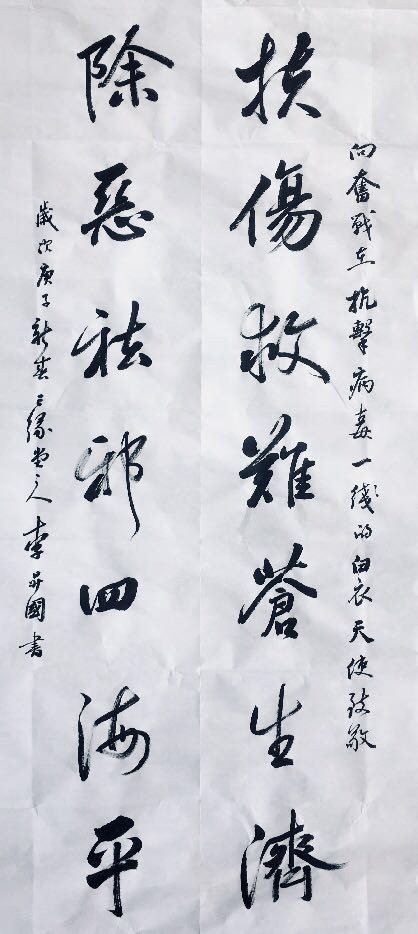 向奮戰在抗擊病毒一綫的白衣天使致敬
扶傷救難蒼生濟
除惡祛邪四海平
歲次庚子新春三緣堂主人李昇國書